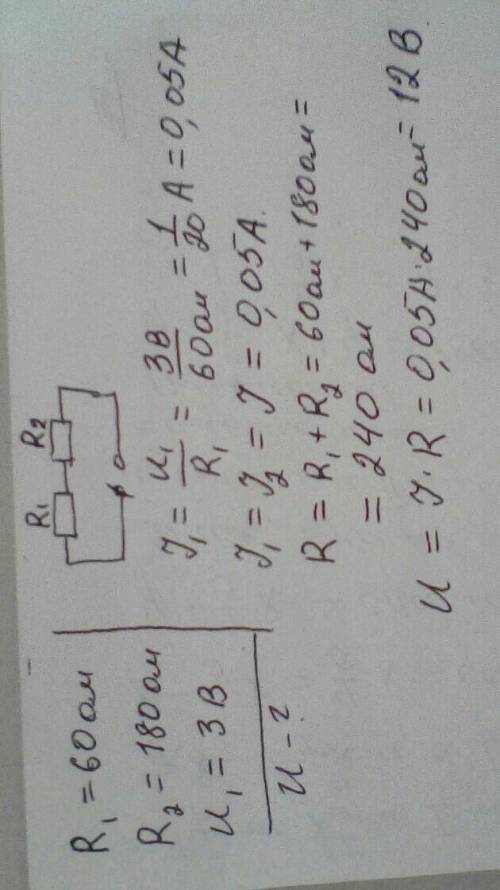 R₁ = 60 ом
R₂ = 180 ом
U₁ = 3 В
U - ?
R₁ R₂
J₁ = U₁/R₁ = 3В/60ом = 1/20 А = 0,05А
J₁ = J₂ = J = 0,05А.
R = R₁ + R₂ = 60ом + 180ом =
= 240 ом
U = J · R = 0,05А · 240ом = 12 В.